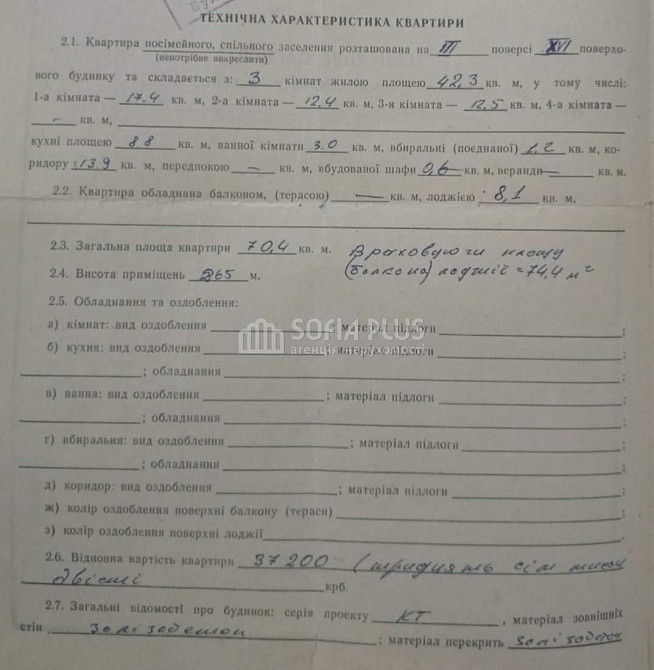 ТЕХНІЧНА ХАРАКТЕРИСТИКА КВАРТИРИ
2.1. Квартира посімейного, спільного заселення розташована на III поверсі XVI поверхо-
(непотрібне викреслити)
вого будинку та складається з: 3 кімнат жилою площею 42,3 кв. м, у тому числі:
1-а кімната — 17.4 кв. м, 2-а кімната — 12,4 кв. м, 3-я кімната — 12,5 кв. м, 4-а кімната —
— кв. м,
кухні площею 8.8 кв. м, ванної кімнати 3.0 кв. м, вбиральні (поєднаної) 1.2 кв. м, ко-
ридору 13.9 кв. м, передпокою — кв. м, вбудованої шафи 0,6 кв. м, веранди — кв. м.
2.2. Квартира обладнана балконом, (терасою) — кв. м, лоджією 8,1 кв. м,
2.3. Загальна площа квартири 70,4 кв. м. Враховуючи площу
2.4. Висота приміщень 265 м. (балкона) лоджії = 74,4 м²
2.5. Обладнання та оздоблення:
а) кімнат: вид оздоблення ; матеріал підлоги ;
SOFIA PLUS
б) кухня: вид оздоблення ; матеріал підлоги ;
агенція нерухомості
; обладнання ;
в) ванна: вид оздоблення ; матеріал підлоги ;
; обладнання ;
г) вбиральня: вид оздоблення ; матеріал підлоги ;
; обладнання ;
д) коридор: вид оздоблення ; матеріал підлоги ;
ж) колір оздоблення поверхні балкону (тераси) ;
з) колір оздоблення поверхні лоджії .
2.6. Відновна вартість квартири 37200 (тридцять сім тисяч
двісті крб.
2.7. Загальні відомості про будинок: серія проекту КТ , матеріал зовнішніх
стін залізобетон ; матеріал перекрить залізобетон